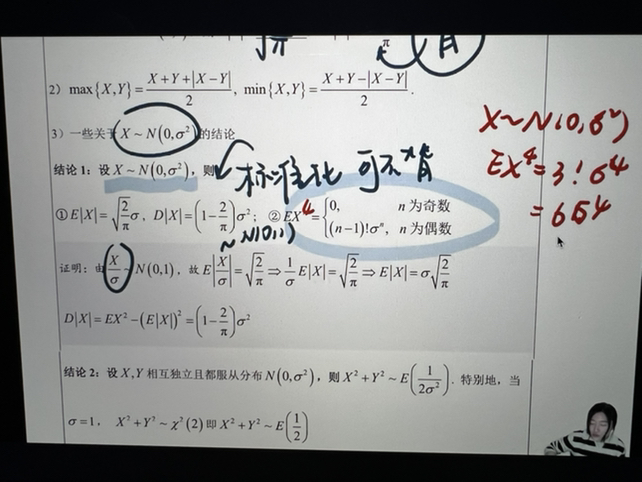 2) max{X,Y} = (X+Y+|X−Y|)/2, min{X,Y} = (X+Y−|X−Y|)/2.
3) 一些关于 X ~ N(0,σ²) 的结论
结论1:设 X ~ N(0,σ²),则
标准化 可不背
① E|X| = √(2/π) σ, D|X| = (1 − 2/π)σ²; ② EX⁴ = { 0, n为奇数
(n−1)!σⁿ, n为偶数
~ N(0,1)
证明:由 X/σ ~ N(0,1),故 E|X/σ| = √(2/π) ⇒ (1/σ)E|X| = √(2/π) ⇒ E|X| = σ√(2/π)
D|X| = EX² − (E|X|)² = (1 − 2/π)σ²
结论2:设 X,Y 相互独立且都服从分布 N(0,σ²),则 X² + Y² ~ E(1/(2σ²)). 特别地,当
σ = 1, X² + Y² ~ χ²(2) 即 X² + Y² ~ E(1/2)
X ~ N(0,σ²)
EX⁴ = 3!σ⁴
= 6σ⁴